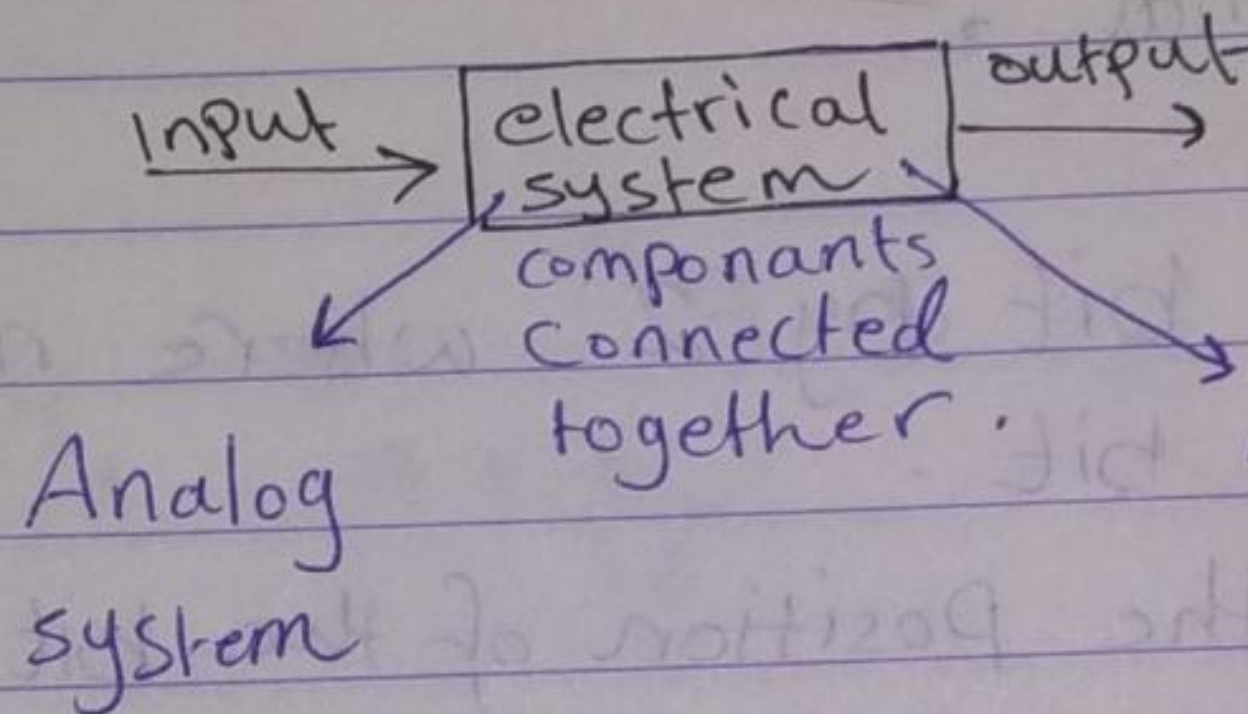 Input
electrical
system
output
componants
connected
together.
Analog
system